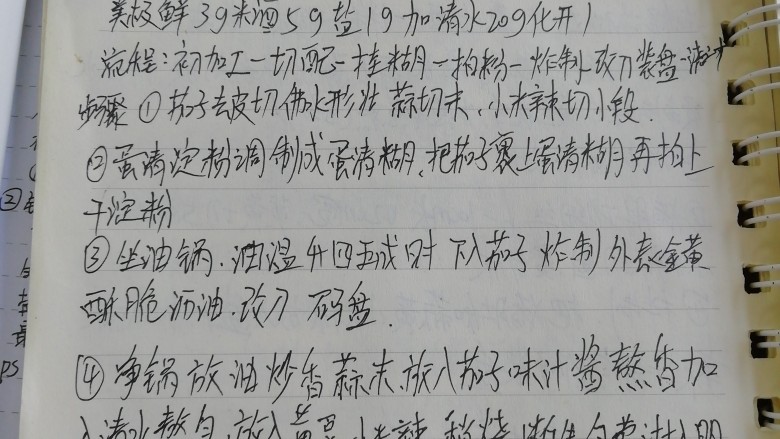 美极鲜3g米酒5g盐1g加清水20g化开)
流程:初加工一切配一挂糊一拍粉一炸制 改刀装盘一浇汁
步骤①茄子去皮切佛水形壮 蒜切末,小米辣切小段.
②蛋清淀粉调制成蛋清糊,把茄子裹上蛋清糊再拍上
干淀粉
③坐油锅.油温升四五成时 下入茄子炸制外表金黄
酥脆沥油.改刀 码盘.
④净锅放油炒香蒜末放入茄子味汁酱熬香加
入清水熬匀,放入
②
PS